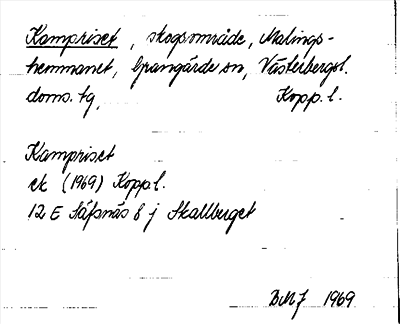 Kampriset, skogsområde, Malings-
hemmanet, Grangärde sn, Västerbergsl.
doms. tg, Kopp. l.
Kampriset
ek (1969) Kopp l.
12 E Säfsnäs 8 j Skallberget
BMJ 1969